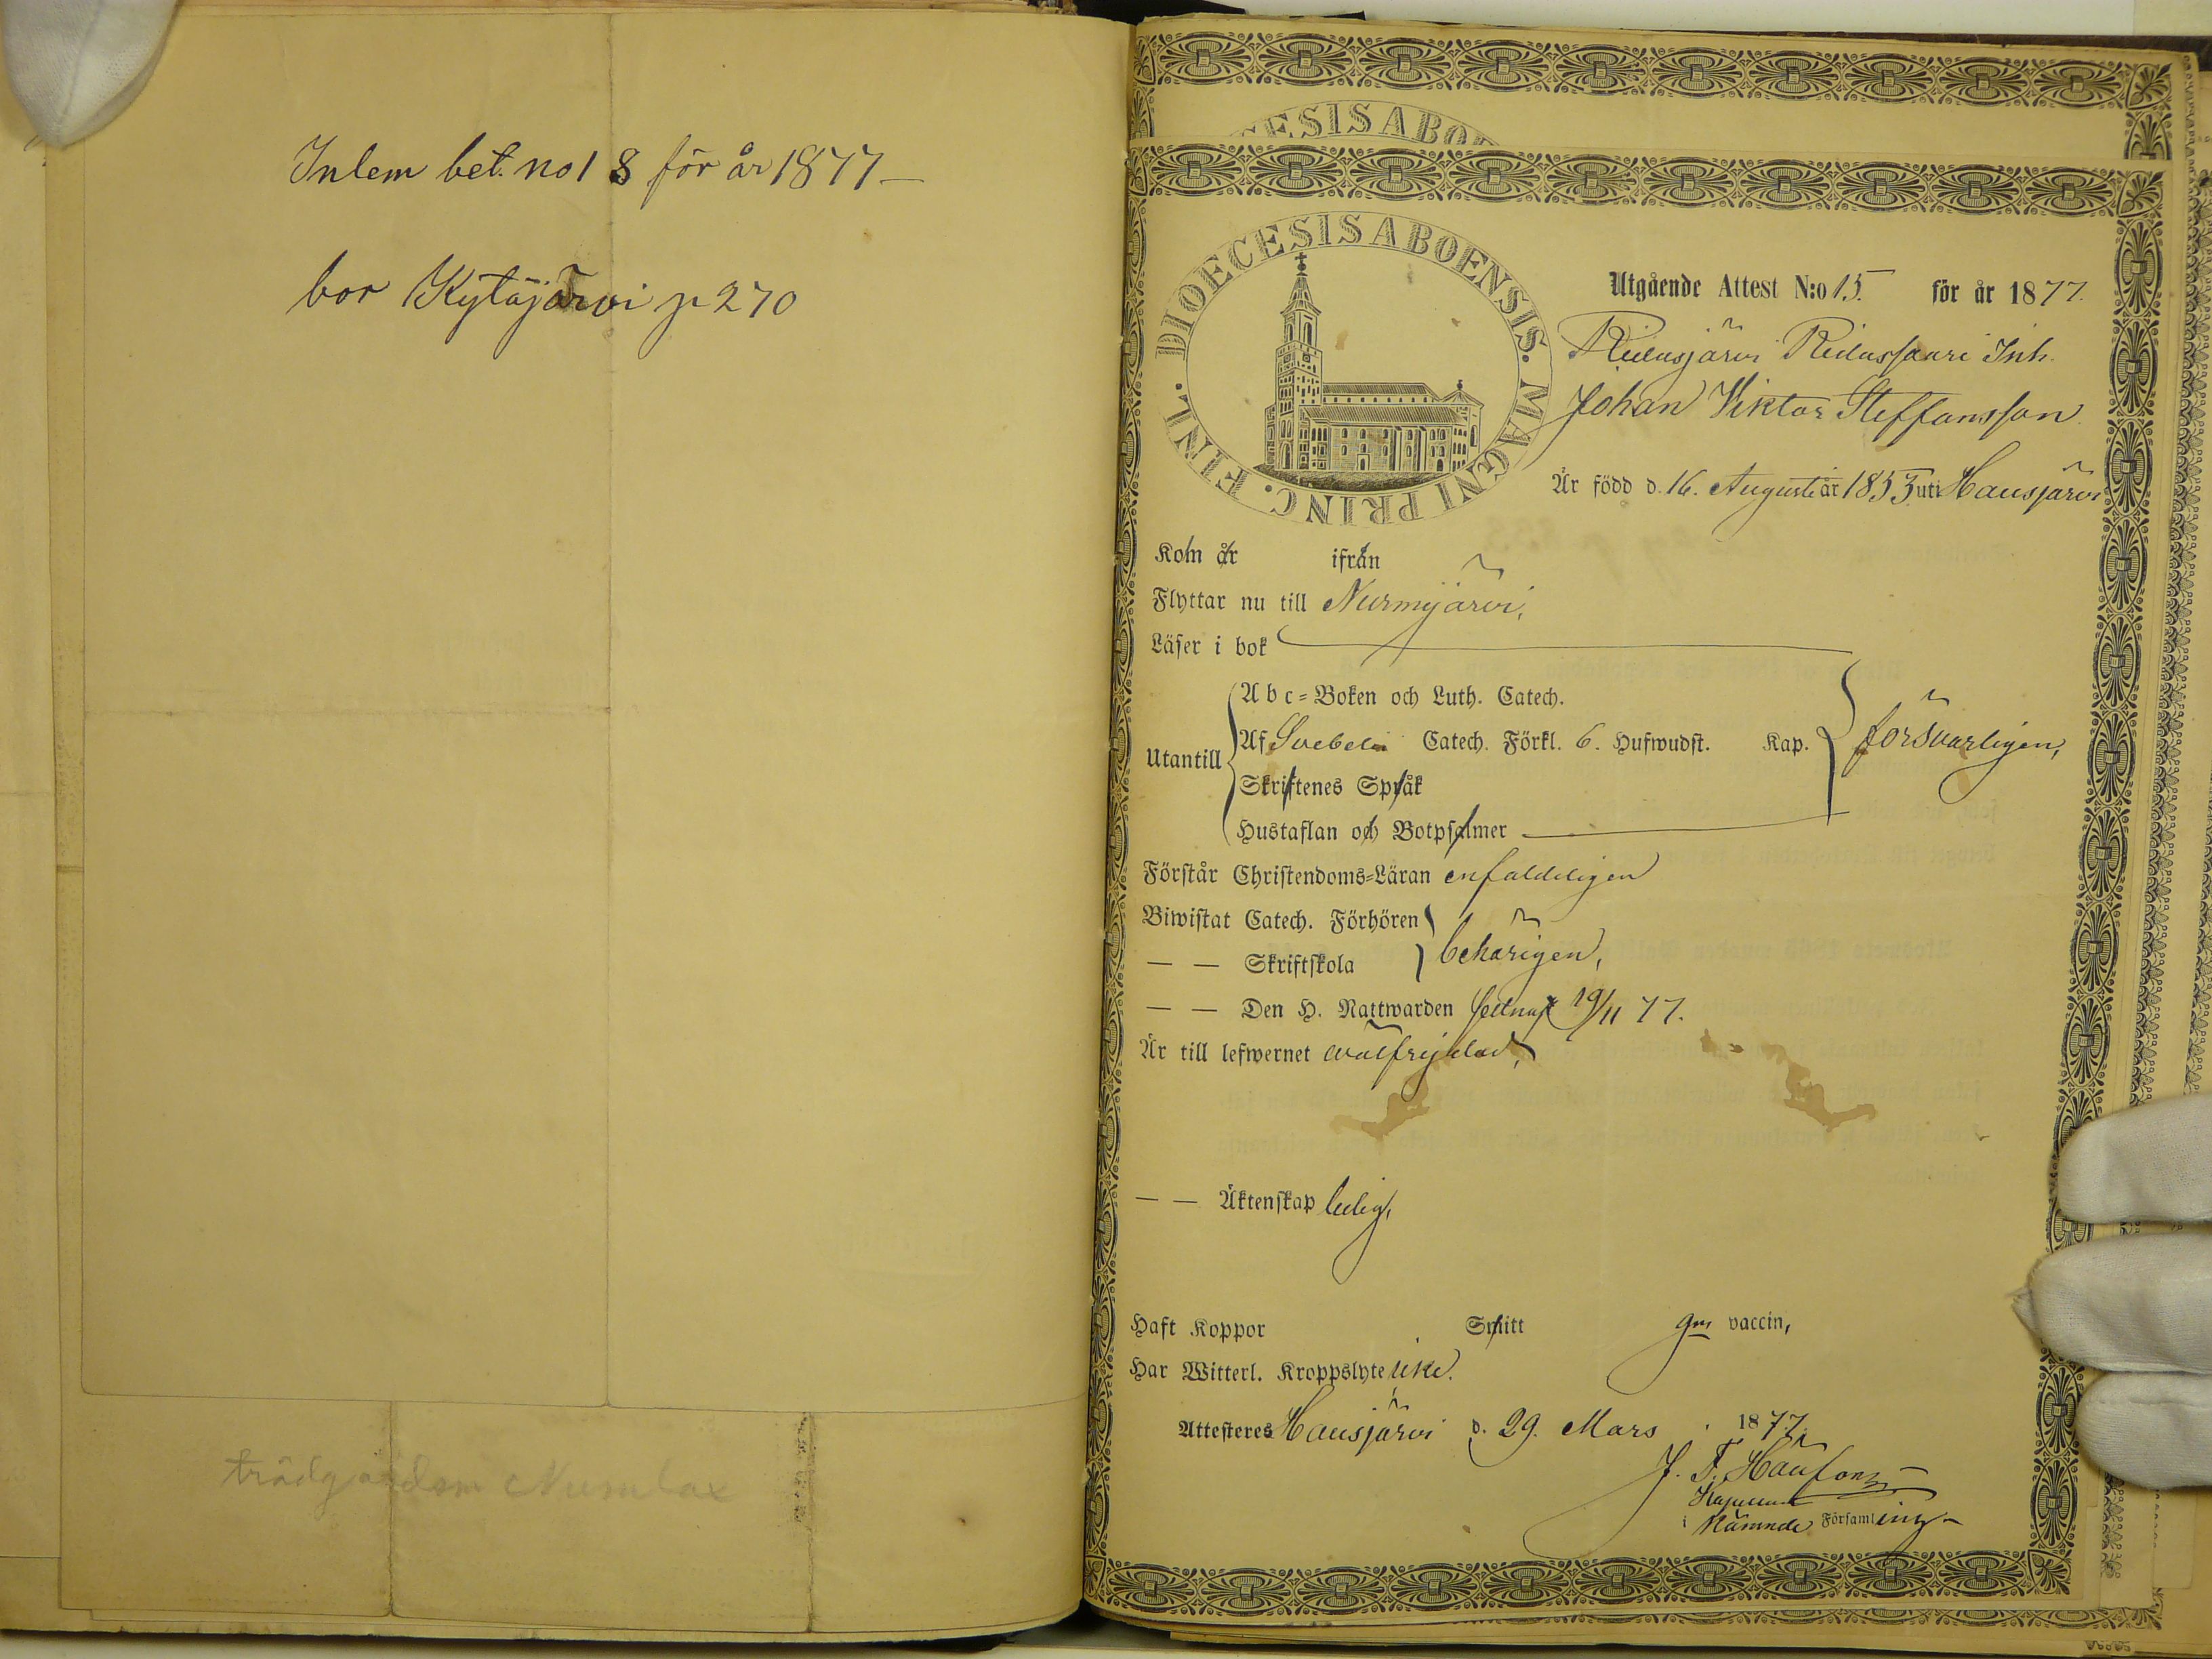 Inlem bet. no 18 för år 1877 —
bor Kytäjärvi p 270
trädgårdsm Numlax
ESIS ABO
DIOECESIS ABOENSIS. MAGNI PRINC. FINL.
Utgående Attest N:o 15. för år 1877.
Ridasjärvi Ridassaari Inh.
Johan Viktor Steffansson
Är född d. 16. Augusti år 1853 uti Hausjärvi
Kom år ifrån
Flyttar nu till Nurmijärvi,
Läser i bok
Abc-Boken och Luth. Catech.
Utantill Af Svebelii Catech. Förkl. 6. Hufwudst. Kap. försvarligen,
Skriftenes Språk
Hustaflan och Botpsalmer
Förstår Christendoms-Läran enfaldeligen
Biwistat Catech. Förhören
— — Skriftskola behörigen,
— — Den H. Nattwarden 19/11 77.
Är till lefwernet wälfrejdad,
— — Äktenskap ledig,
Haft Koppor Smitt gm vaccin,
Har Witterl. Kroppslyte icke.
Attesteras Hausjärvi d. 29. Mars 1877.
J. F.
Kapellan
i Nämnde Församling